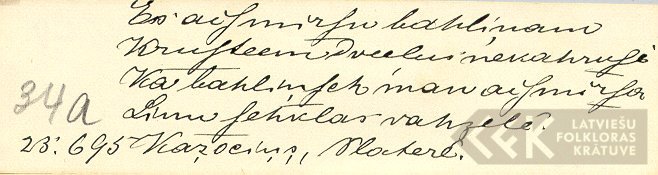 Es aismirsu bahlinam
Krusteem dveelus nekahrusi
Ka bahlinsch man aismirsa
Linu sehklas vahzele.
34a
23: 695 Kazociņš, Slaterē.
LATVIEŠU
FOLKLORAS
KRĀTUVE